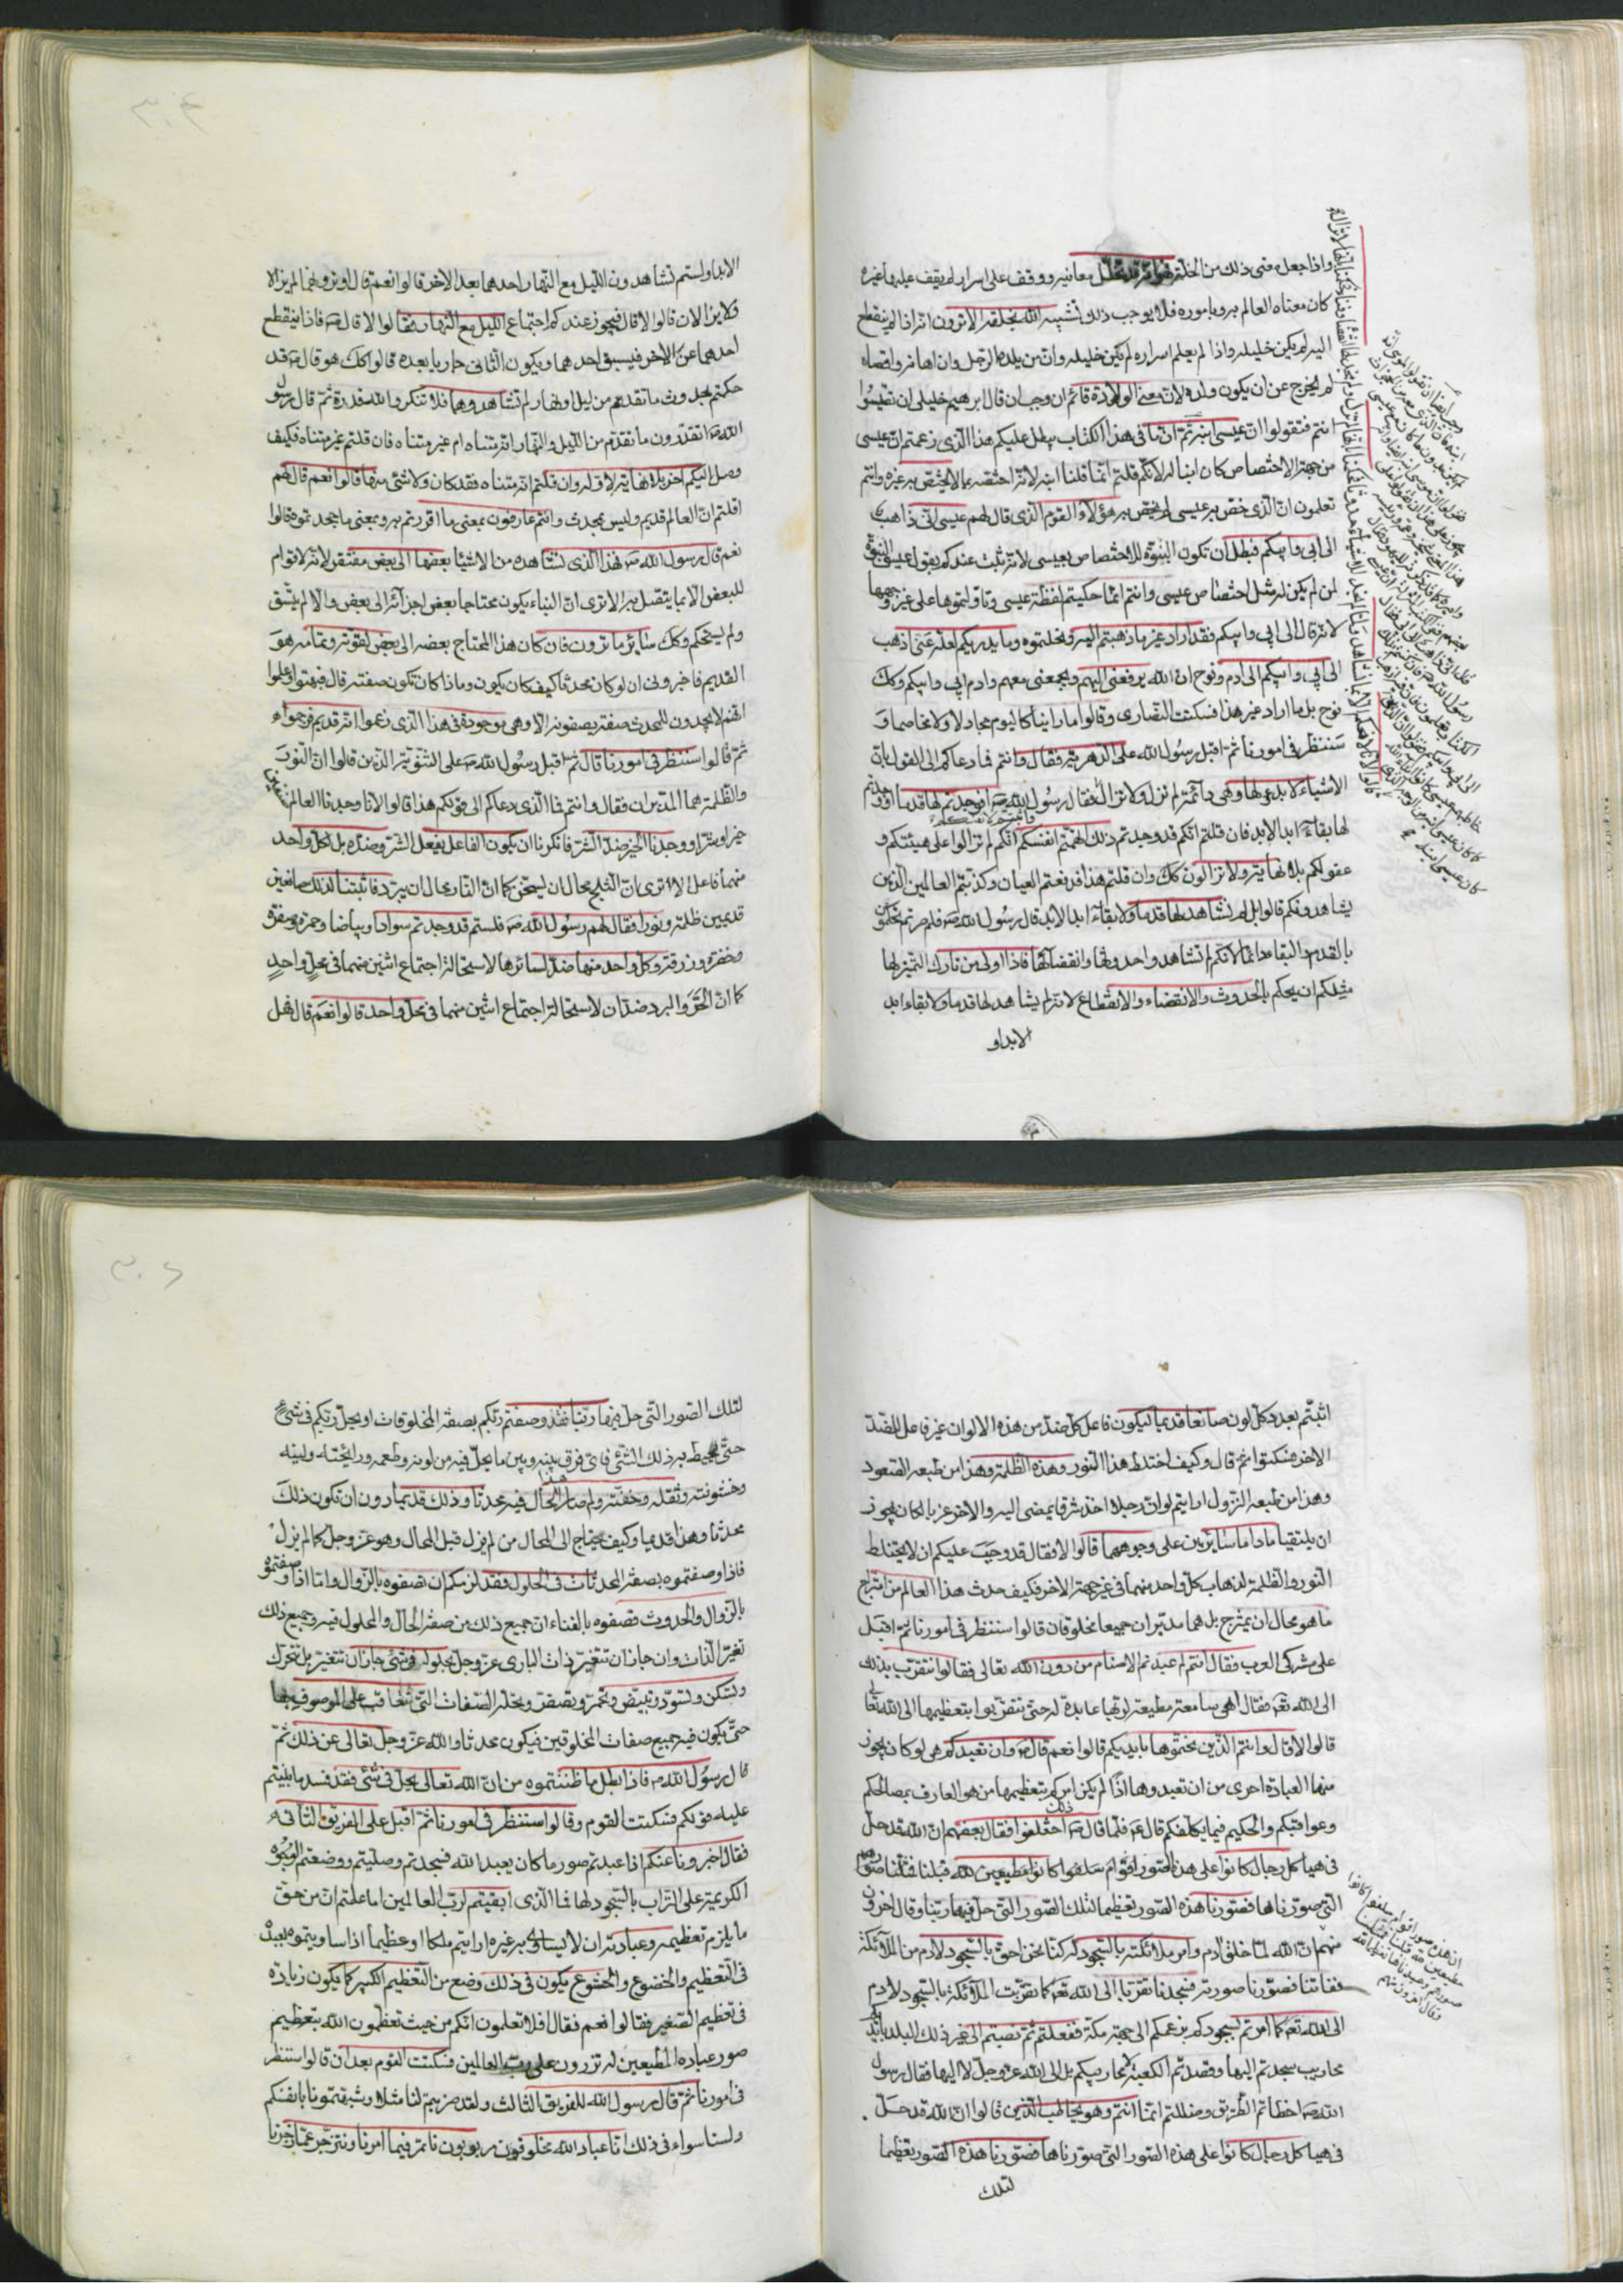 واذا جعل معنى ذلك من الخلة فهو انه قد تخلل معانيه ووقف على اسرار لم يقف عليها غيره
كان معناه العالم به وباموره فلا يوجب ذلك تشبيه الله بخلقه الا ترون انه اذا لم ينقطع
اليه لم يكن خليله واذا لم يعلم اسراره لم يكن خليله وان من يلده الرجل وان اهانه واقصاه
لم يخرج عن ان يكون ولده لان معنى الولادة قائم ثم ان وجب ان قال ابرهيم خليلي ان تقيسوا
انتم فتقولوا ان عيسى ابنه ثم ان ما في هذا الكتاب يبطل عليكم هذا الذي زعمتم ان عيسى
من جهة الاختصاص كان ابنا له لانكم قلتم انما قلنا ابنه لانه اختصه بما لا يختص به غيره وانتم
تعلمون ان الذي خص به عيسى لم يخص به هؤلاء القوم الذي قال لهم عيسى اني ذاهب
الى ابي وابيكم فبطل ان تكون البنوة للاختصاص بعيسى لانه ثبت عندكم بقول عيسى البنوة
لمن لم يكن له مثل اختصاص عيسى وانتم انما حكيتم لفظة عيسى وتاولتموها على غير وجهها
لانه قال الى ابي وابيكم فقد اراد غير ما ذهبتم اليه ونحلتموه وما يدريكم لعله عنى اذهب
الى ابي وابيكم الى ادم ونوح ان الله يرفعني اليهم ويجمعني معهم وادم ابي وابيكم وكك
نوح بل ما اراد غير هذا فسكتت النصارى وقالوا ما راينا كاليوم مجادلا ولا مخاصما و
سننظر في امورنا ثم اقبل رسول الله على الدهرية فقال وانتم فما دعاكم الى القول بان
الاشياء لا بدو لها وهي دائمة لم تزل ولا تزال فقال رسول الله ص افوجدتم لها قدما او وجدتم
لها بقاء ابد الابد فان قلتم انكم قد وجدتم ذلك انهضتم لانفسكم انكم لم تزالوا على هيئتكم و
عقولكم بلا نهاية ولا تزالون كك وان قلتم هذا دفعتم العيان وكذبتم العالمين الذين
يشاهدونكم قالوا بل لم نشاهد لها قدما ولا بقاء ابد الابد قال رسول الله ص فلم صرتم تحكمون
بالقدم والبقاء دائما لانكم لم تشاهدوا حدوثها وانقضائها فاذا اولى من تارك التميز لها
مثلكم ان يحكم بالحدوث والانقضاء والانقطاع لانه لم يشاهد لها قدما ولا بقاء ابد
الابد او
الابد اولستم تشاهدون الليل مع النهار احدهما بعد الاخر قالوا نعم قال اوترونهما لم يزالا
ولا يزالان قالوا لا قال فيجوز عندكم اجتماع الليل مع النهار فقالوا لا قال ص فاذا ينقطع
احدهما عن الاخر فيسبق احدهما ويكون الثاني جاريا بعده قالوا كك هو قال ص قد
حكمتم بحدوث ما تقدم من ليل او نهار لم تشاهدوهما فلا تنكروا الله قدرة ثم قال رسول
الله ص اتقدرون ما تقدم من الليل والنهار انه متناه ام غير متناه فان قلتم غير متناه فكيف
وصل اليكم اخر بلا نهاية لاوله وان قلتم انه متناه فقد كان ولا شئ منهما قالوا نعم قال لهم
اقلتم ان العالم قديم وليس بمحدث وانتم عارفون بمعنى ما اقررتم به وبمعنى ما جحدتموه قالوا
نعم قال رسول الله ص فهذا الذي نشاهده من الاشياء بعضها الى بعض مفتقر لانه لا قوام
للبعض الا بما يتصل به الا ترى ان البناء يكون محتاجا بعض اجزائه الى بعض والا لم يتسق
ولم يستحكم وكك سائر ما ترون فان كان هذا المحتاج بعضه الى بعض لقوته وتمامه هو
القديم فاخبروني ان لو كان محدثا كيف كان يكون وماذا كان تكون صفته قال فبهتوا وعلموا
انهم لا يجدون للمحدث صفة يصفونه الا وهي موجودة في هذا الذي زعموا انه قديم فوجموا
ثم قالوا سننظر في امورنا قال ثم اقبل رسول الله ص على الثنوية الذين قالوا ان النور
والظلمة هما المدبران فقال وانتم فما الذي دعاكم الى قولكم هذا قالوا لانا وجدنا العالم صنفين
خيرا وشرا ووجدنا الخير ضد الشر فانكرنا ان يكون الفاعل يفعل الشر وضده بل لكل واحد
منهما فاعل الا ترى ان الثلج محال ان يسخن كما ان النار محال ان يبرد فاثبتنا لذلك صانعين
قديمين ظلمة ونورا فقال لهم رسول الله ص فلستم قد وجدتم سوادا وبياضا وحمرة وصفرة
وخضرة وزرقة وكل واحد منها ضد لسائرها لاستحالة اجتماع اثنين منهما في محل واحد
كما ان الحر والبرد ضدان لاستحالة اجتماع اثنين منهما في محل واحد قالوا نعم قال فهل
اثبتم بعدد كل لون صانعا قديما ليكون فاعل كل ضد من هذه الالوان غير فاعل الضد
الاخر فسكتوا ثم قال وكيف اختلط هذا النور وهذه الظلمة وهذا من طبعه الصعود
وهذا من طبعه النزول ارايتم لو ان رجلا اخذ شرقا يمضي اليه والاخر غربا لكان يجوز
ان يلتقيا ماداما سائرين على وجوههما قالوا لا فقال قد وجب عليكم ان لا يختلط
النور والظلمة لذهاب كل واحد منهما في غير جهة الاخر فكيف حدث هذا العالم من امتزاج
ما هو محال ان يمتزج بل هما مدبران جميعا مخلوقان قالوا سننظر في امورنا ثم اقبل
على مشركي العرب فقال انتم لم عبدتم الاصنام من دون الله تعالى فقالوا نتقرب بذلك
الى الله تعه فقال اهي سامعة مطيعة لربها عابدة له حتى تتقربوا بتعظيمها الى الله تعالى
قالوا لا قال وانتم الذين نحتموها بايديكم قالوا نعم قال ص وان تعبدكم هي لو كان يجوز
منها العبادة احرى من ان تعبدوها اذا لم يكن امركم بتعظيمها من هو العارف بمصالحكم
وعواقبكم والحكيم فيما يكلفكم قال ع فلما قال ص ذلك اختلفوا فقال بعضهم ان الله قد حل
في هياكل رجال كانوا على هذه الصور اقوام سلفوا كانوا مطيعين لله قبلنا فمثلنا صورهم
التي صورناها فصورنا هذه الصور تعظيما لتلك الصور التي حل فيها ربنا وقال اخرون
منهم ان الله لما خلق ادم وامر ملائكته بالسجود له كنا نحن احق بالسجود لادم من الملائكة
ففاتنا فصورنا صورته فسجدنا تقربا الى الله تعه كما تقربت الملائكة بالسجود لادم
الى الله تعه كما امرتم بسجودكم بزعمكم الى جهة مكة ففعلتم ثم نصبتم الى غير ذلك البلد بايديكم
محاريب سجدتم اليها وقصدتم الكعبة لا محاريبكم بل الى الله عز وجل لا اليها فقال رسول
الله ص اخطاتم الطريق وضللتم اما انتم وهو يخاطب الذين قالوا ان الله قد حل
في هياكل رجال كانوا على هذه الصور التي صورناها فصورنا هذه الصور تعظيما
لتلك
ان هذه صور اقوام سلفوا كانوا
مطيعين لله قبلنا فمثلنا
صورهم وعبدناها تعظيما لله
وقال اخرون منهم
لتلك الصور التي حل فيها ربنا فقد وصفتم ربكم بصفة المخلوقات او يحل ربكم في شئ
حتى يحيط به ذلك الشئ فاى فرق بينه وبين ما يحل فيه من لونه وطعمه ورايحته ولينه
وخشونته وثقله وخفته ولم صار هذا الحال فيه محدثا وذلك قديما دون ان تكون ذلك
محدثا وهذا قديما وكيف يحتاج الى المحال من لم يزل قبل المحال وهو عز وجل كما لم يزل
فاذا وصفتموه بصفة المحدثات في الحلول فقد لزمكم ان تصفوه بالزوال واما اذا وصفتموه
بالزوال والحدوث فصفوه بالفناء ان جميع ذلك من صفة الحال والمحلول فيه وجميع ذلك
تغير الذات وان جاز ان تتغير ذات البارى عز وجل بحلوله في شئ جاز ان تتغير بل تحرك
وتسكن وتسود وتبيض وتحمر وتصفر وتحله الصفات التي تتعاقب على الموصوف بها
حتى يكون فيه جميع صفات المخلوقين فيكون محدثا والله عز وجل تعالى عن ذلك ثم
قال رسول الله ص فاذا بطل ما ظننتموه من ان الله تعالى يحل في شئ فقد فسد ما بنيتم
عليه قولكم فسكتت القوم وقالوا سننظر في امورنا ثم اقبل على الفريق الثاني
فقال اخبرونا عنكم اذا عبدتم صور ما كان يعبد الله فسجدتم وصليتم ووضعتم الوجوه
الكريمة على التراب بالسجود لها فما الذي ابقيتم لرب العالمين اما علمتم ان من حق
ما يلزم تعظيمه وعبادته ان لا يساوى به غيره ارايتم ملكا او عظيما اذا ساويتموه بعبده
في التعظيم والخضوع والخشوع يكون في ذلك وضع من التعظيم الكبير كما يكون زيادة
في تعظيم الصغير فقالوا نعم فقال افلا تعلمون انكم من حيث تعظمون الله بتعظيم
صور عباده المطيعين له تزرون على رب العالمين فسكتت القوم بعد ان قالوا سننظر
في امورنا ثم قال رسول الله للفريق الثالث ولقد ضربتم لنا مثلا وشبهتمونا بانفسكم
ولسنا سواء في ذلك انا عباد الله مخلوقون مربوبون ناتمر فيما امرنا وننزجر عما زجرنا